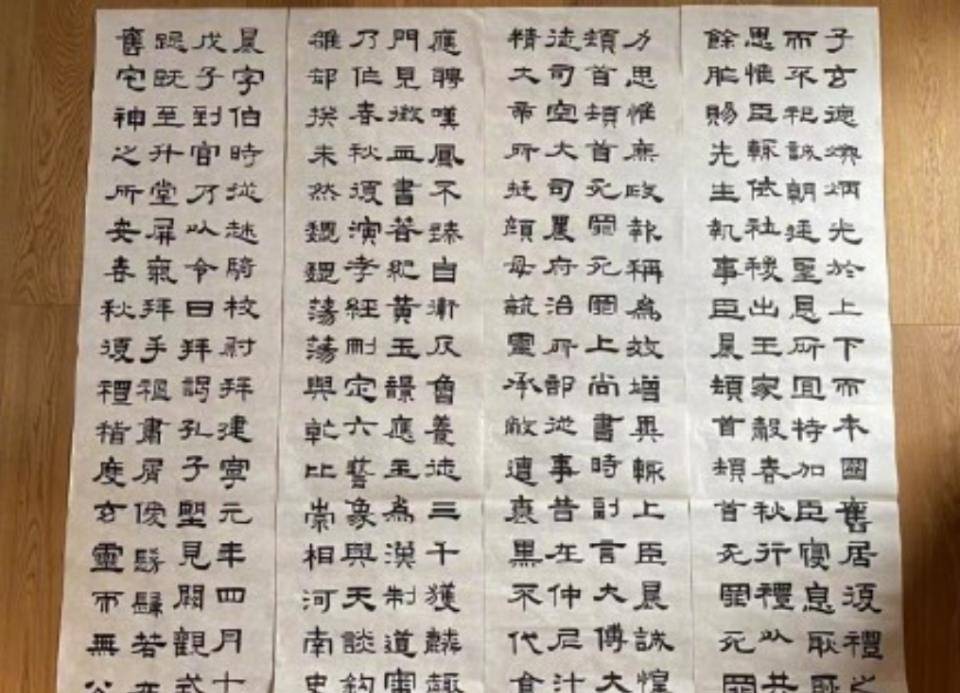 子玄德煥炳光於上下而本國舊居復禮之
而不祀誠朝廷聖恩所宜特加臣寑息耿耿
思惟臣輒依社稷出王家穀春秋行禮以共
餘胙賜先生執事臣晨頓首頓首死罪死罪
力思惟庶政報稱為效增異輒上臣晨誠惶
頓首頓首死罪死罪上尚書時副言大傅大
徒司空大司農府治所部從事昔在仲尼汁
精大帝所挺顏母毓靈承敝遭衰黑不代倉
應聘嘆鳳不臻自衛反魯養徒三千獲麟趣
門見徵血書著紀黃玉韻應主為漢制道審
乃作春秋復演孝經刪定六藝象與天談鉤
雒却揆未然魏魏蕩蕩與乾比崇相河南史
晨字伯時從越騎校尉拜建寧元年四月十
戊子到官乃以令日拜謁孔子望見闕觀式
踧既至升堂屏氣拜手祗肅屑僾髣髴若在
舊宅神之所安春秋復禮稽度玄靈而無公